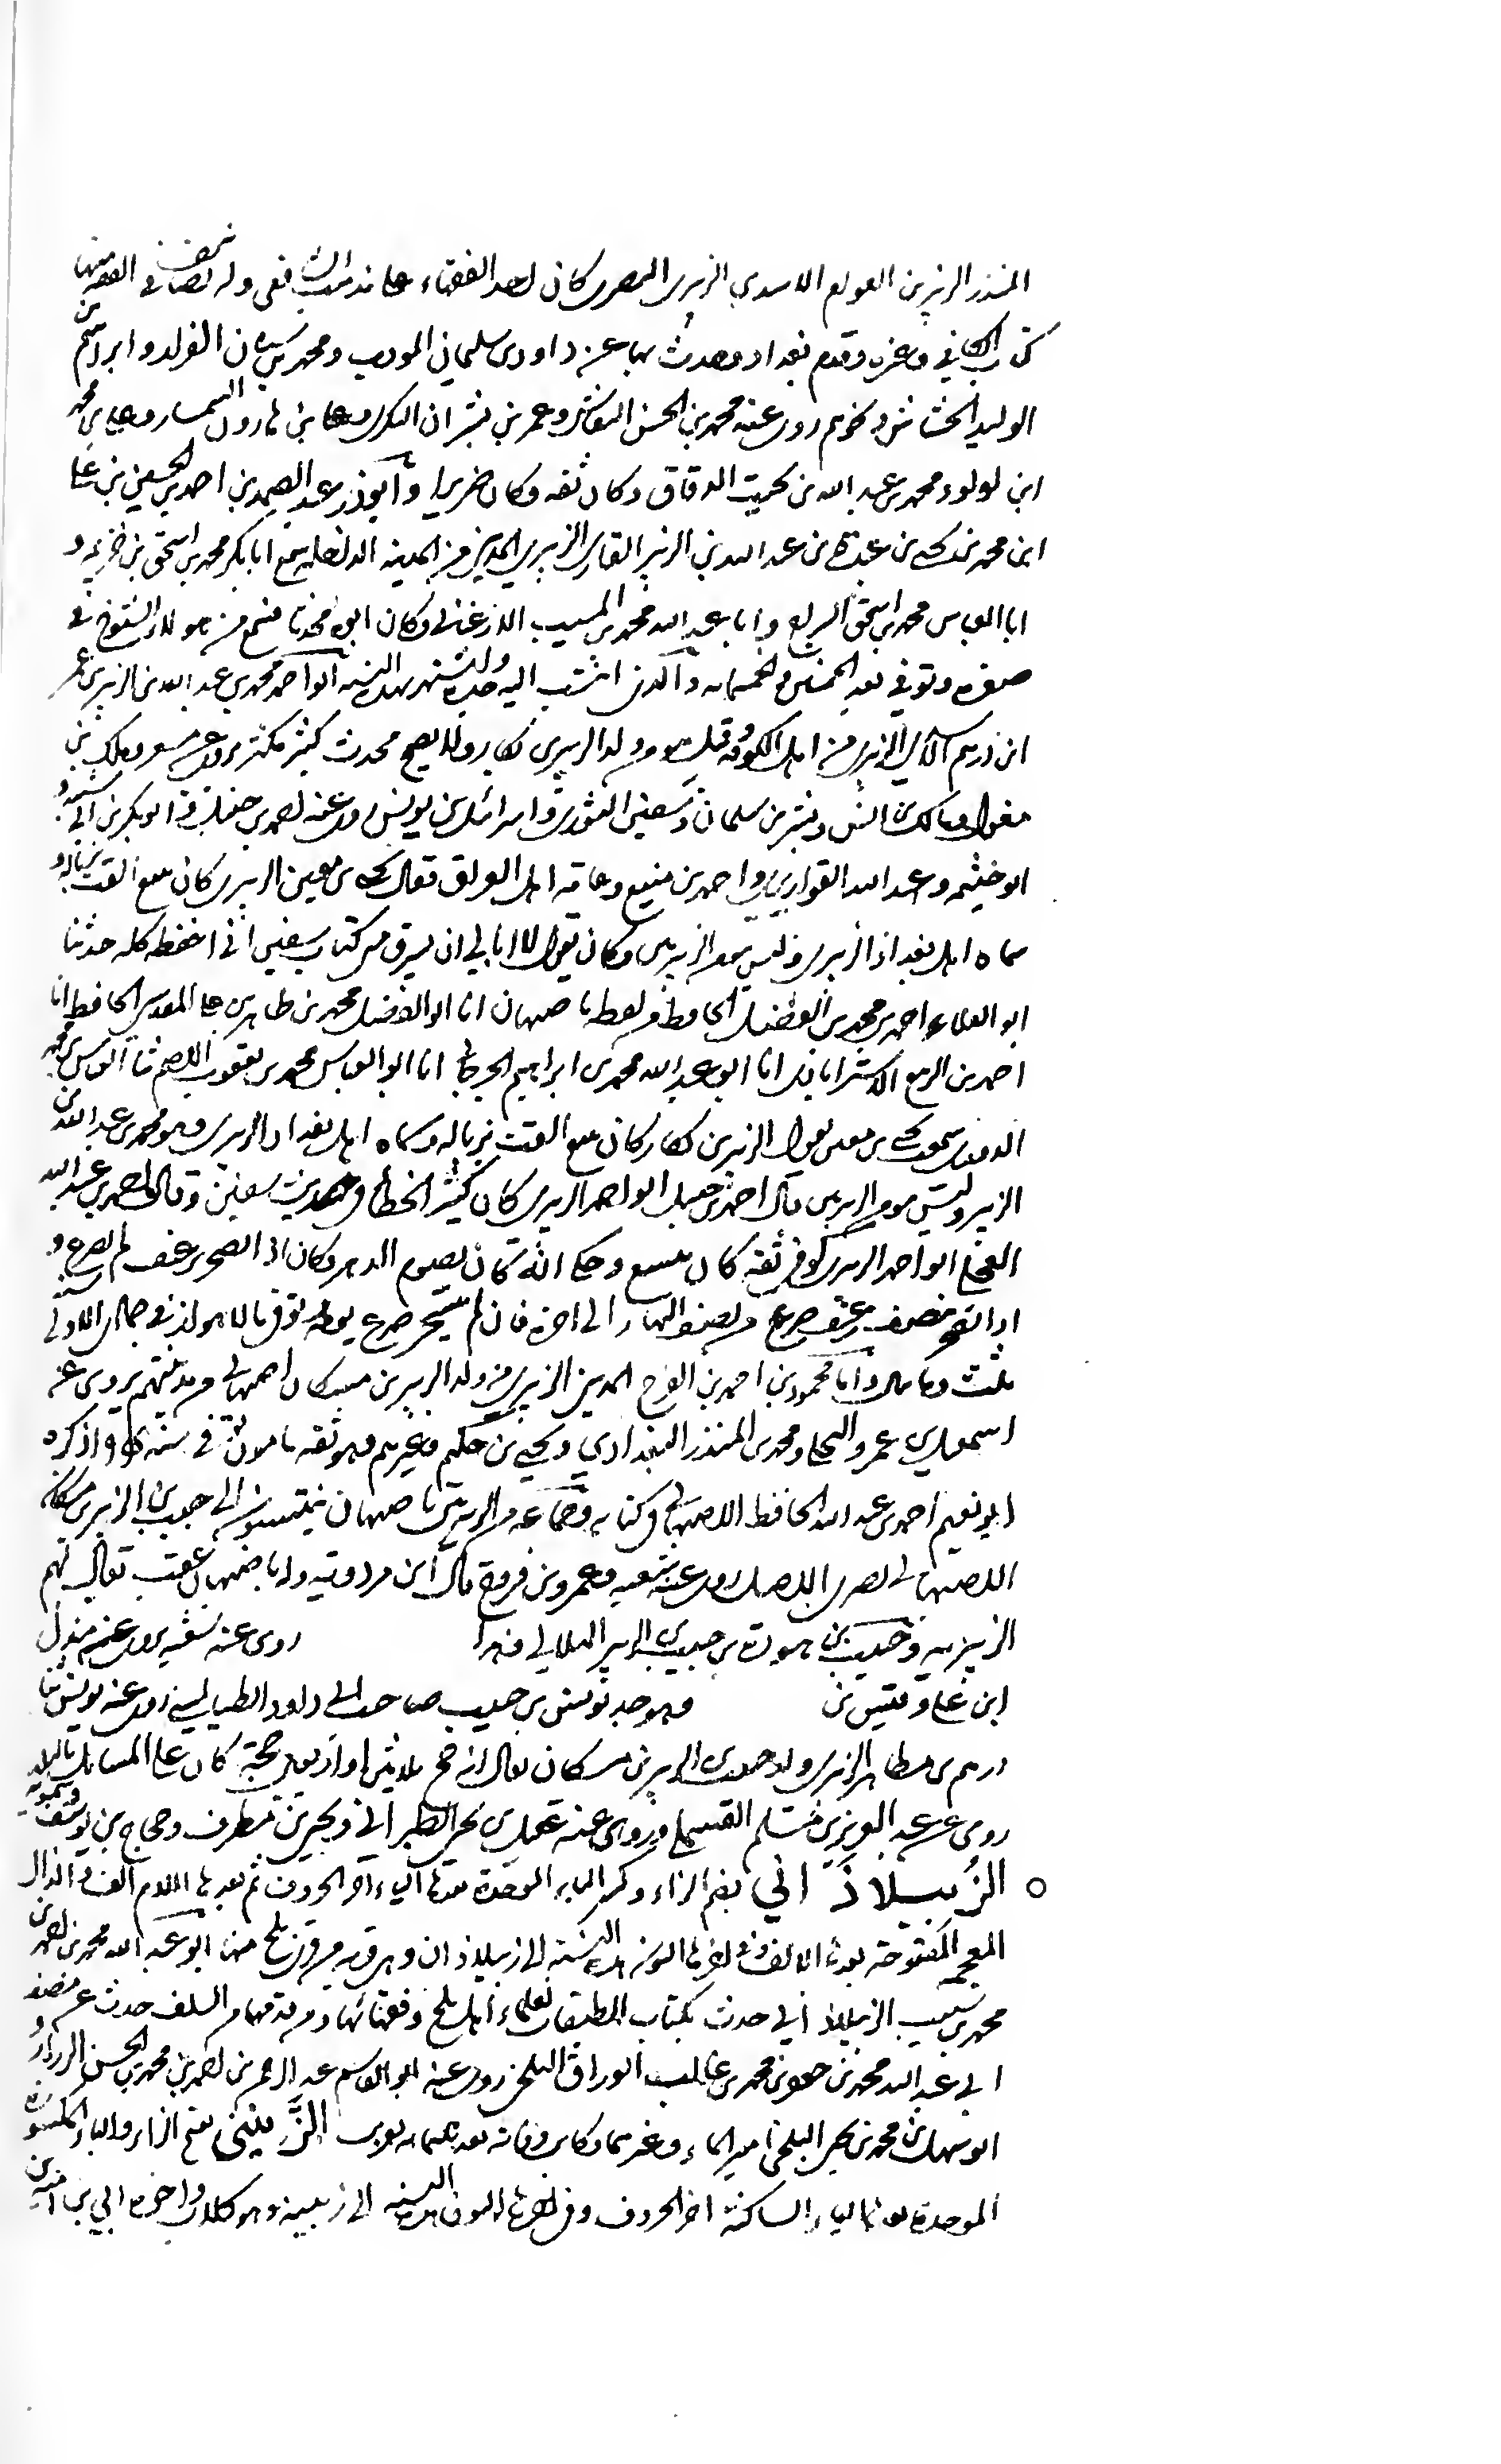 المنذر الزبير بن العوام الاسدي الزبيري البصري كان احد الفقهاء على مذهب الشافعي وله تصانيف في الفقه منها
كتاب الكافي وغيره وقدم بغداد وحدث بها عن داود بن سليمان المودب ومحمد بن سنان القزاز وابراهيم بن
الوليد الجشاش ونحوهم روى عنه محمد بن الحسن النقاش وعمر بن بشران السكري وعلي بن هارون السمسار وعلي بن محمد
ابن لولو ومحمد بن عبد الله بن بخيت الدقاق وكان ثقه وكان ضريرا وابو ذر عبد الصمد بن احمد بن الحسين بن علي
ابن محمد بن يحيى بن عبد الله بن الزبير القاري الزبيري المديني من المدينه الداخله سمع ابا بكر محمد بن اسحق بن خزيمه و
ابا العباس محمد بن اسحق السراج وابا عبد الله محمد بن المسيب الارغياني وكان ابوه محدثا فسمع من هولاء الشيوخ في
صغره وتوفي بعد الخمسين والثلثمايه والذي انتسب الى جده واشتهر بهذه النسبه ابو احمد محمد بن عبد الله بن الزبير بن عمر
ابن درهم الاسدي الزبيري من اهل الكوفه وقيل هو من ولد الزبير بن بكار ولا يصح محدث كبير مكثر يروى عن مسعر ومالك بن
مغول ومالك بن انس وبشير بن سلمان وسفين الثوري واسرائيل بن يونس روى عنه احمد بن حنبل وابو بكر بن ابي شيبه و
ابو خيثمه وعبيد الله القواريري واحمد بن منيع وعامة اهل العراق قال يحيى بن معين الزبيري كان يبيع القت بزباله و
سماه اهل بغداد الزبيري وليس هو الزبيري وكان يقول لا ابالي ان يسرق مني كتاب سفين اني احفظه كله حدثنا
ابو العلاء احمد بن محمد بن الفضل الحافظ من لفظه باصبهان انا ابو الفضل محمد بن طاهر بن علي المقدسي الحافظ انا
احمد بن الربيع انا ابو عبد الله محمد بن ابراهيم الجرجاني انا ابو العباس محمد بن يعقوب الاصم ثنا العباس بن محمد
الدوري سمعت يحيى بن معين يقول الزبير بن بكار كان يبيع القت بزباله وسماه اهل بغداد الزبيري وهو محمد بن عبد الله بن
الزبير وليس هو الزبيري قال احمد بن حنبل ابو احمد الزبيري كان كثير الخطا في حديث سفين وقال احمد بن عبد الله
العجلي ابو احمد الزبيري كوفي ثقه كان يتشيع وحكي انه كان يصوم الدهر وكان اذا تسحر برغيف لم يصدع و
اذا تسحر بنصف رغيف صدع من نصف النهار الى اخره فان لم يتسحر صدع يومه توفي بالاهواز في جمادى الاولى
ثلث ومايتين واما محمود بن احمد بن الفرج المديني الزبيري من ولد الزبير بن مسكان اصبهاني من مدينتهم يروي عن
اسمعيل بن عمرو البجلي ومحمد بن المنذر البغدادي ويحيى بن حكيم وغيرهم وهو ثقه مامون في سنه ذكره
ابو نعيم احمد بن عبد الله الحافظ الاصبهاني في كتابه وجماعه من الزبيريين باصبهان ينتسبون الى حبيب بن الزبير بن مشكان
الاصبهاني بصري الاصل روى عنه شعبه وعمرو بن فروخ قال ابن مردويه وله باصبهان عقب يقال لهم
الزبيريه وحبيب بن هوذة بن حبيب بن الزبير الهلالي منهم روى عنه شعبه يروى عن مندل
ابن علي وقيس بن وهو جد يونس بن حبيب صاحب ابي داود الطيالسي روى عنه يونس بنا
درهم بن مظاهر الزبيري ولد حبيب بن الزبير بن مسكان يقال انه حج ثلاثين او اربعين حجة كان على المسايل بالبلد
روى عن عبد العزيز بن مسلم القسملي وروى عنه عقيل بن يحيى الطهراني ويحيى بن مطرف وحجاج بن يوسف
○ الزُبيلاذَاني بضم الزاء وكسر الباء الموحدة بعدها الياء اخر الحروف ثم بعدها اللام الف والذال
المعجمة المفتوحة بعدها الالف وفي اخرها النون هذه النسبة الى زبيلاذان وهي قريه من قرى بلخ منها ابو عبد الله محمد بن احمد بن
محمد بن شبيب الزبيلاذاني حدث بكتاب الطبقات لعلماء اهل بلخ وفقهائها ومن قدمها من السلف حدث عن مصنفه
ابي عبد الله محمد بن جعفر بن محمد بن غالب الوراق البلخي روى عنه ابو القاسم عبد الرحمن بن احمد بن محمد بن الحسن الزراد و
ابو سهل بن محمد بن يحيى البلخي امير الماء وغيرهما وكان وفاته بعد ثلثمايه الزَّبيني بفتح الزاء والباء المكسورة
الموحدة بعدها الياء الساكنة اخر الحروف وفي اخرها النون هذه النسبه الى زبينه وهو كلاب واخوه ابي بن اميه بن